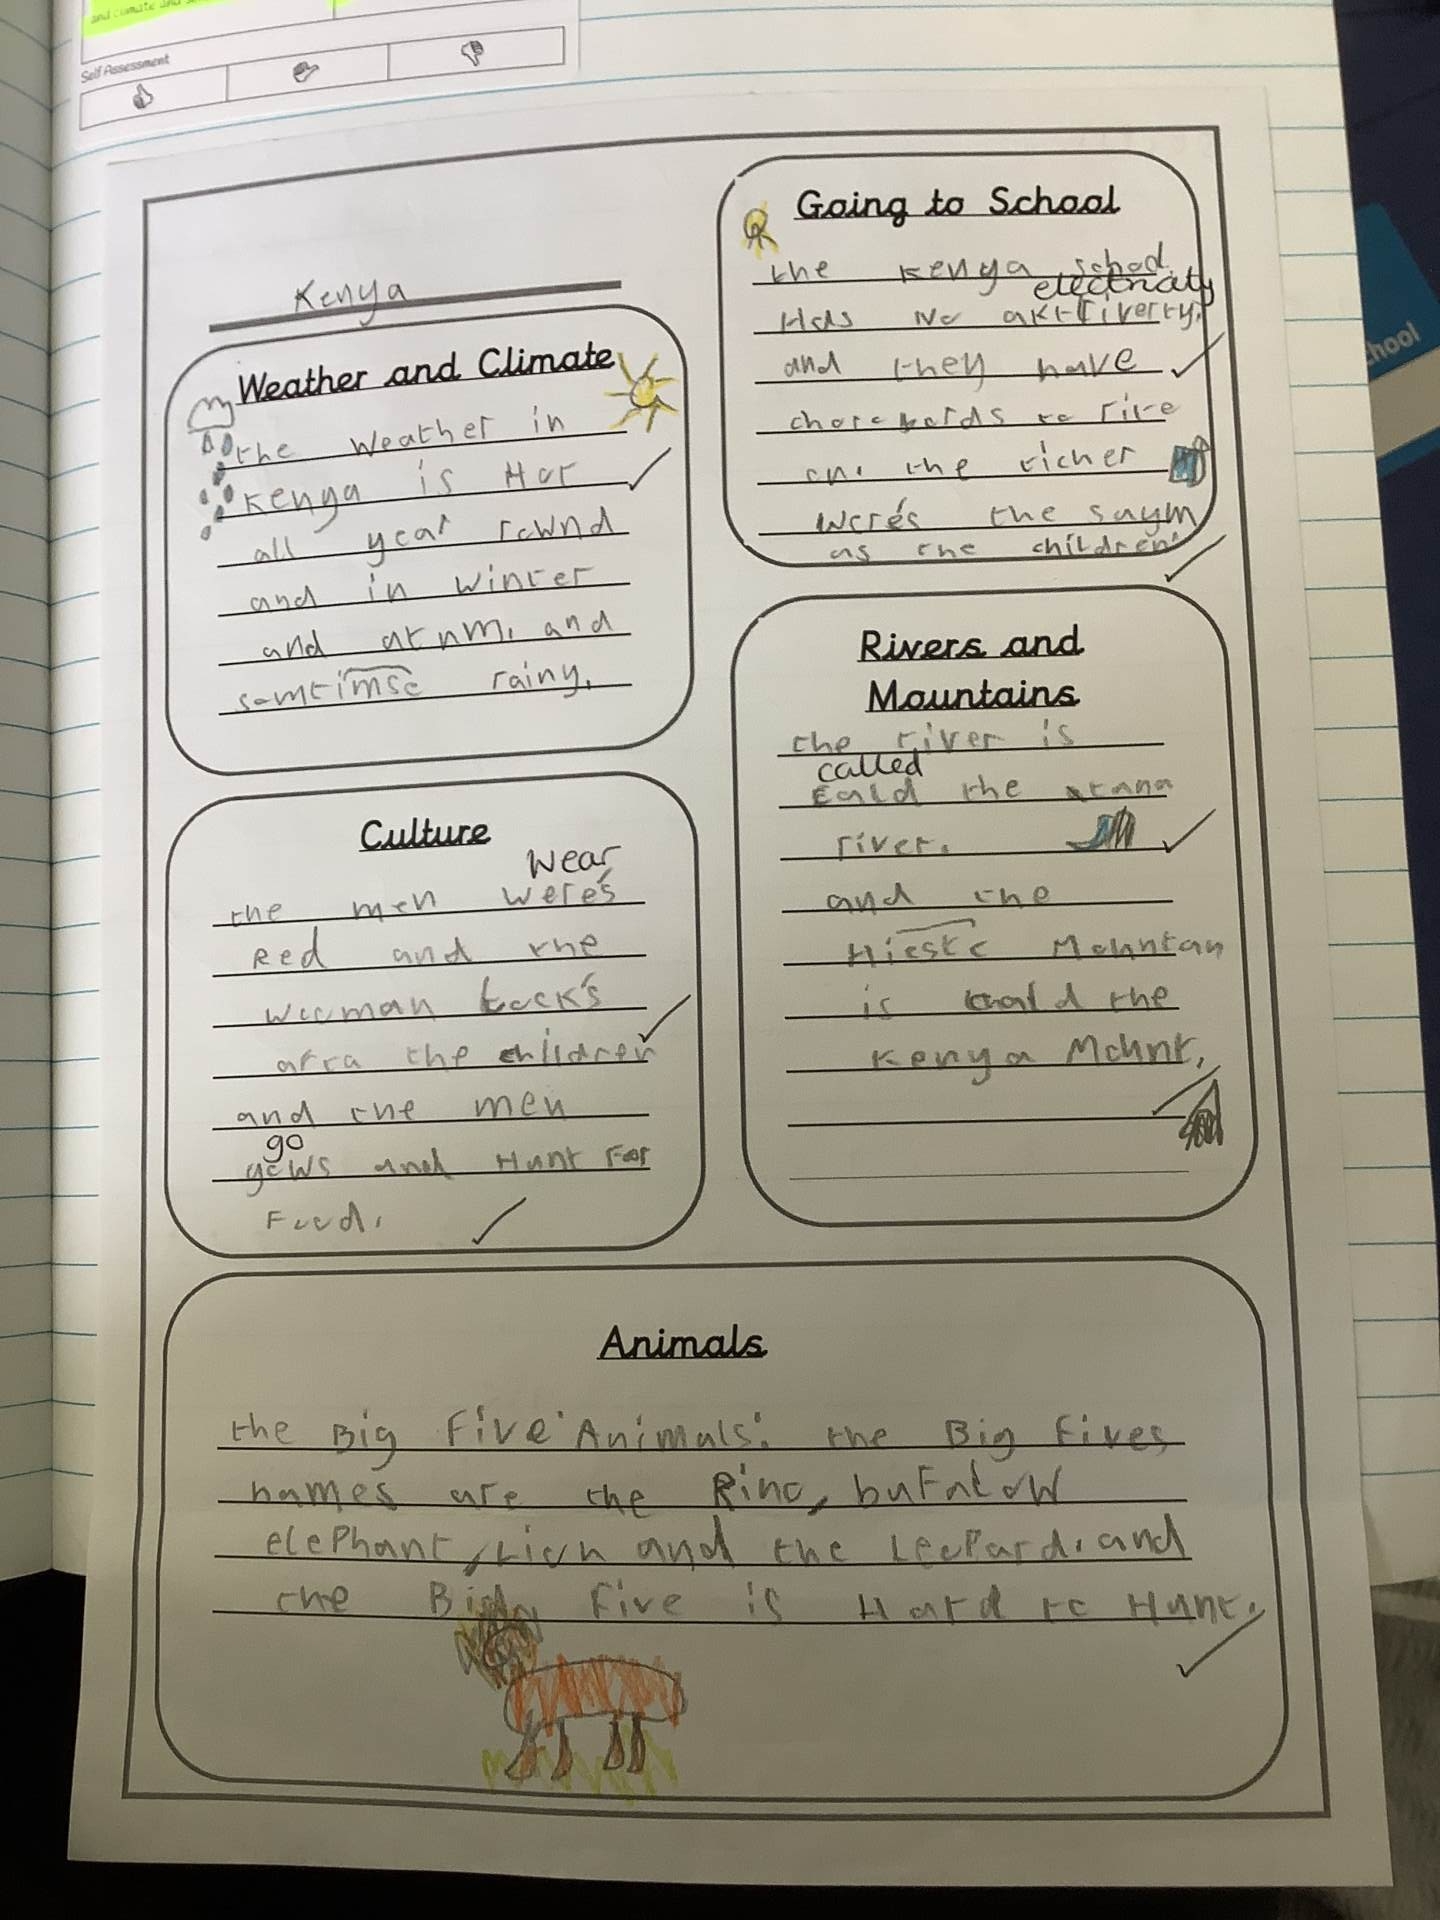 and climate and
Self Assessment
Kenya
Weather and Climate
the Weather in
Kenya is Hot
all year rownd
and in winter
and atnm. and
somtimse rainy.
Culture
wear
the men were's
Red and the
wooman look's
afta the children
and the men
go
gows and Hunt For
Food.
Going to School
the Kenya school
electricity
Has No
and they have
to rite
on. the ticher
were's the saym
as the children
Rivers and
Mountains
the river is
called
cald the tana
river.
and the
Hieste Mountan
is cald the
Kenya Mount.
Animals
the Big Five Animals. the Big Fives
names are the Rino, bufalow
elephant, Lion and the Leopard. and
the Big Five is Hard to Hunt.
hool